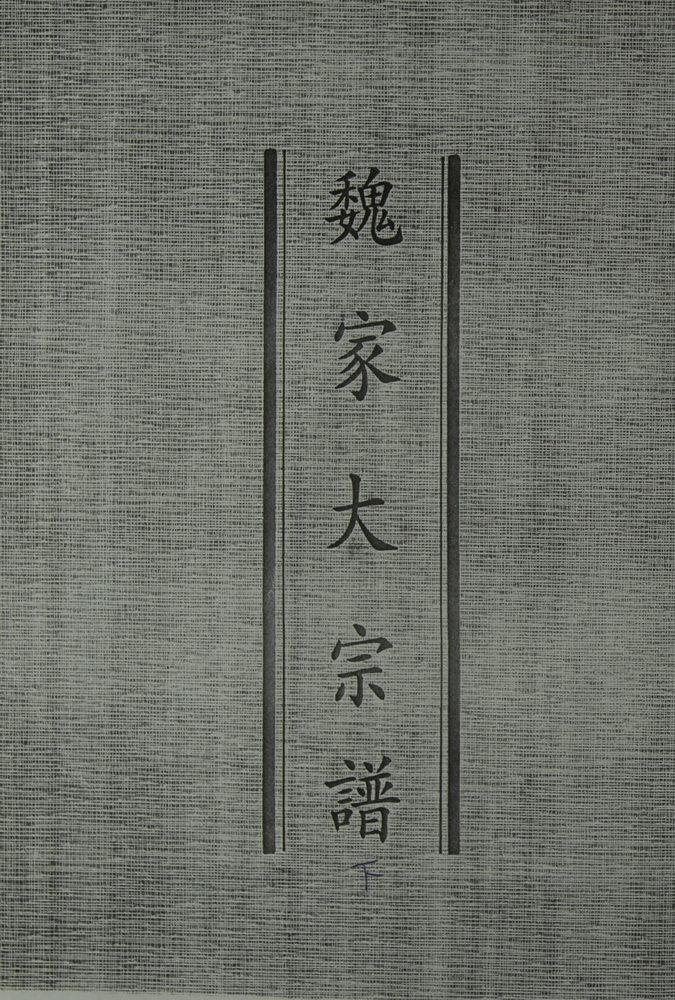 魏家大宗譜
下